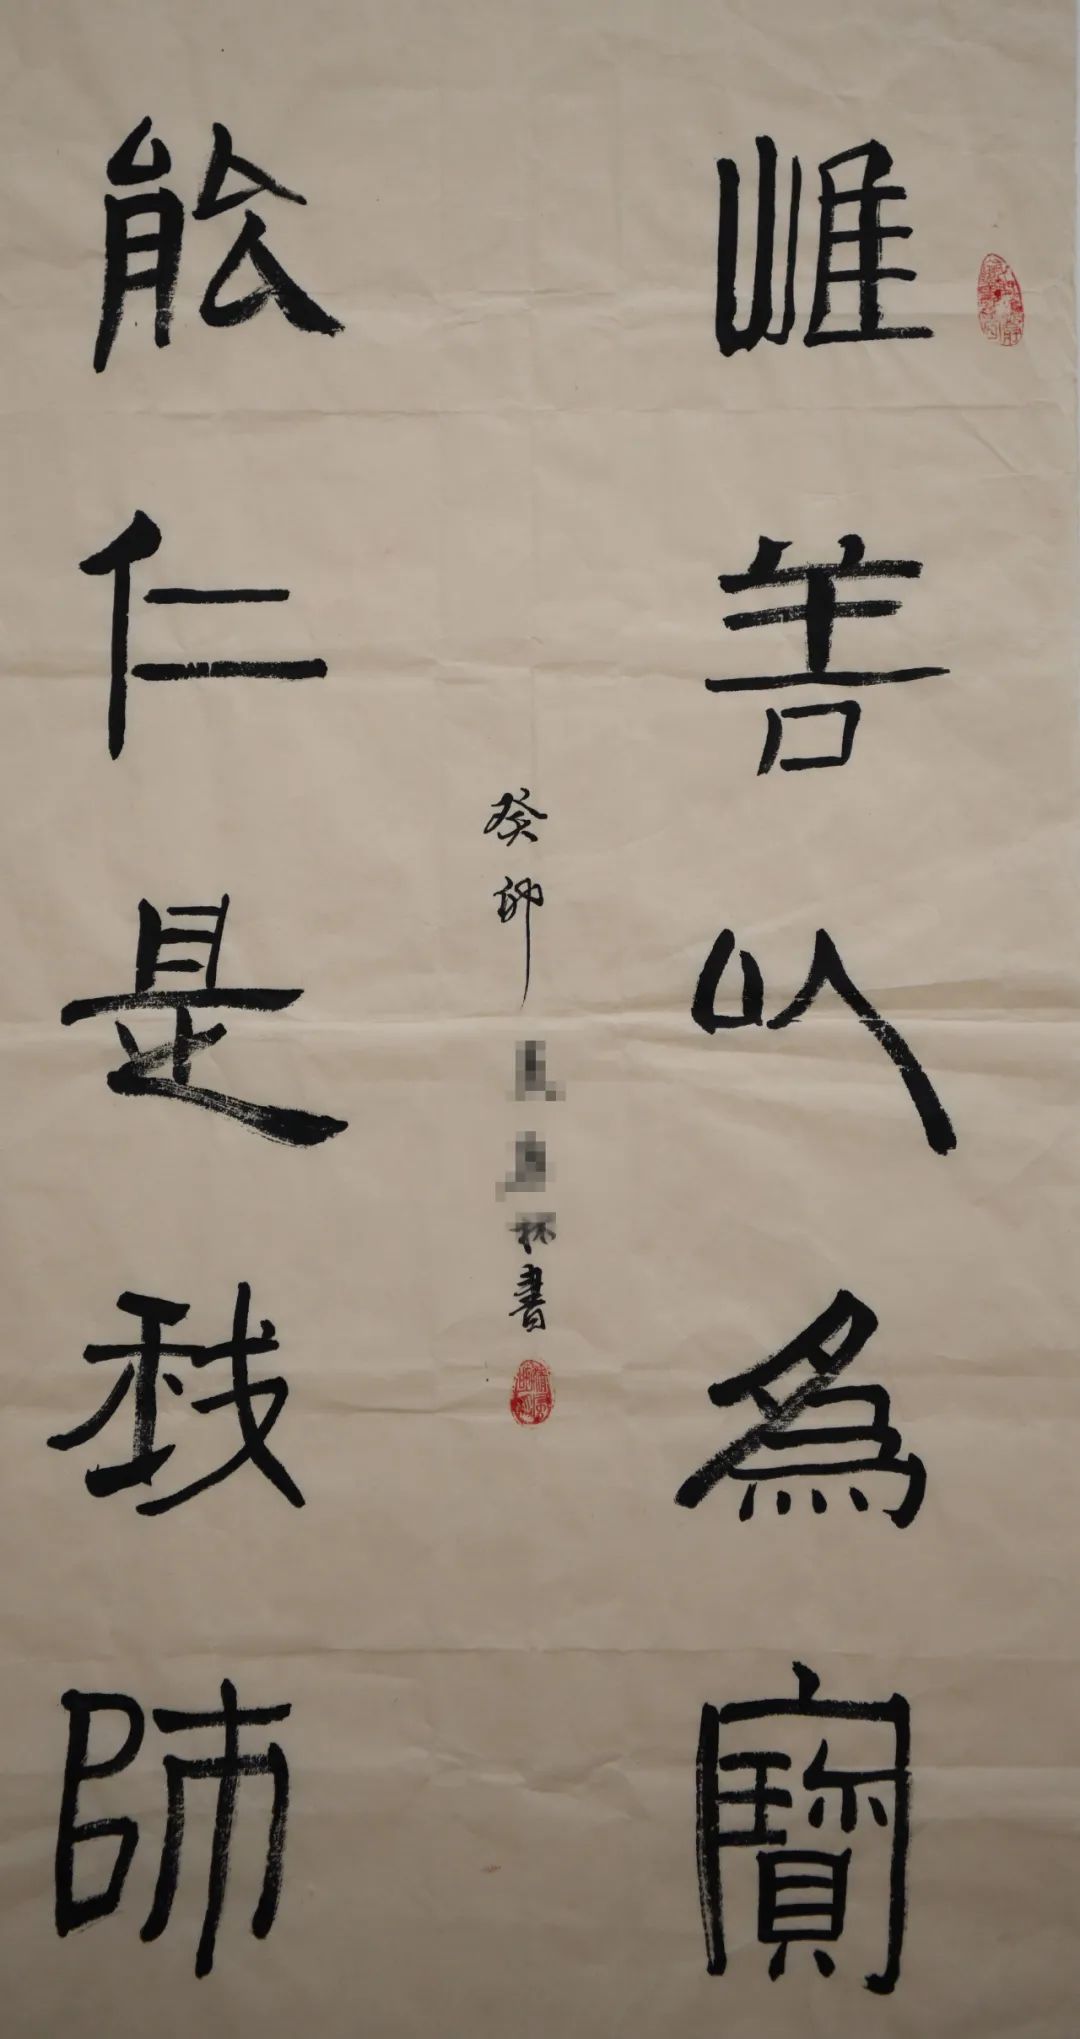 惟善以為寶
能仁是我師
癸卯
書